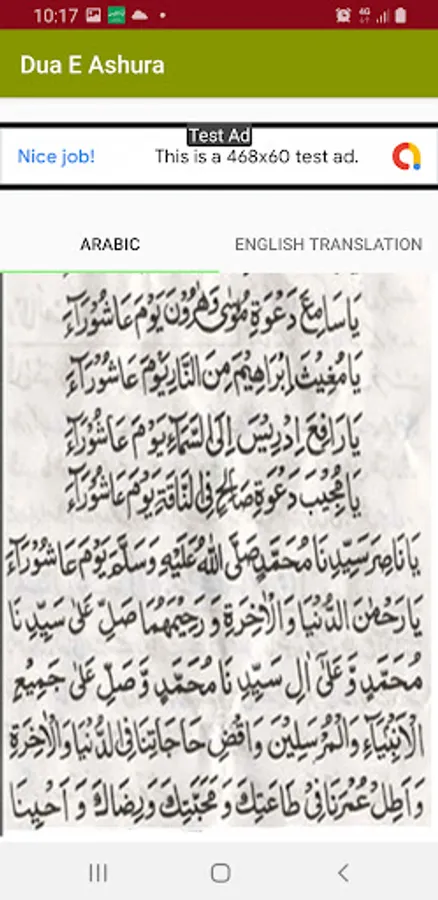 10:17
4G
Dua E Ashura
Test Ad
Nice job!
This is a 468x60 test ad.
ARABIC
ENGLISH TRANSLATION
يَاسَامِعَ دَعْوَةِ مُوْسٰى وَهٰرُوْنَ يَوْمَ عَاشُوْرَآءَ
يَامُغِيْثَ اِبْرَاهِيْمَ مِنَ النَّارِ يَوْمَ عَاشُوْرَآءَ
يَارَافِعَ اِدْرِيْسَ اِلَى السَّمَآءِ يَوْمَ عَاشُوْرَآءَ
يَامُجِيْبَ دَعْوَةِ صَالِحٍ فِى النَّاقَةِ يَوْمَ عَاشُوْرَآءَ
يَانَاصِرَ سَيِّدِنَا مُحَمَّدٍ صَلَّى اللهُ عَلَيْهِ وَسَلَّمَ يَوْمَ عَاشُوْرَآءَ
يَارَحْمٰنَ الدُّنْيَا وَالْاٰخِرَةِ وَرَحِيْمَهُمَا صَلِّ عَلٰى سَيِّدِنَا
مُحَمَّدٍ وَّعَلٰٓى اٰلِ سَيِّدِنَا مُحَمَّدٍ وَّصَلِّ عَلٰى جَمِيْعِ
الْاَنْبِيَآءِ وَالْمُرْسَلِيْنَ وَاقْضِ حَاجَاتِنَا فِى الدُّنْيَا وَالْاٰخِرَةِ
وَاَطِلْ عُمُرَنَا فِىْ طَاعَتِكَ وَمَحَبَّتِكَ وَرِضَاكَ وَاَحْيِنَا